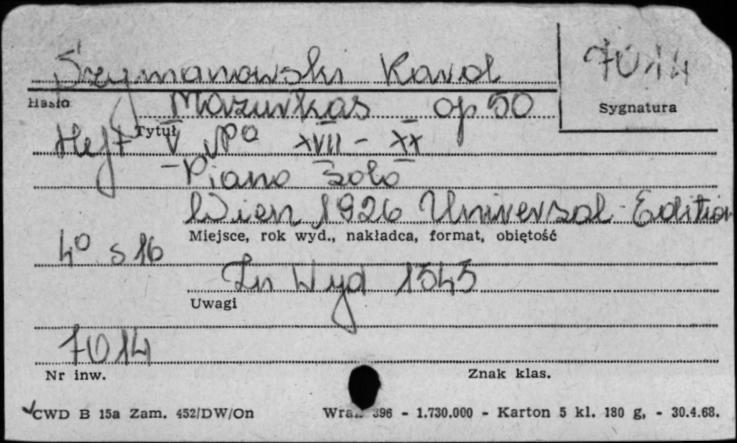 Szymanowski Karol
7014
Hasło
Sygnatura
Mazurkas op 50
Tytuł
Heft V Nº XVII - XX
Piano solo
Wien 1926 Universal Edition
Miejsce, rok wyd., nakładca, format, objętość
4º s 16
Zn Wyd 1545
Uwagi
7014
Nr inw.
Znak klas.
CWD B 15a Zam. 452/DW/On
396 - 1.730.000 - Karton 5 kl. 180 g, - 30.4.68.